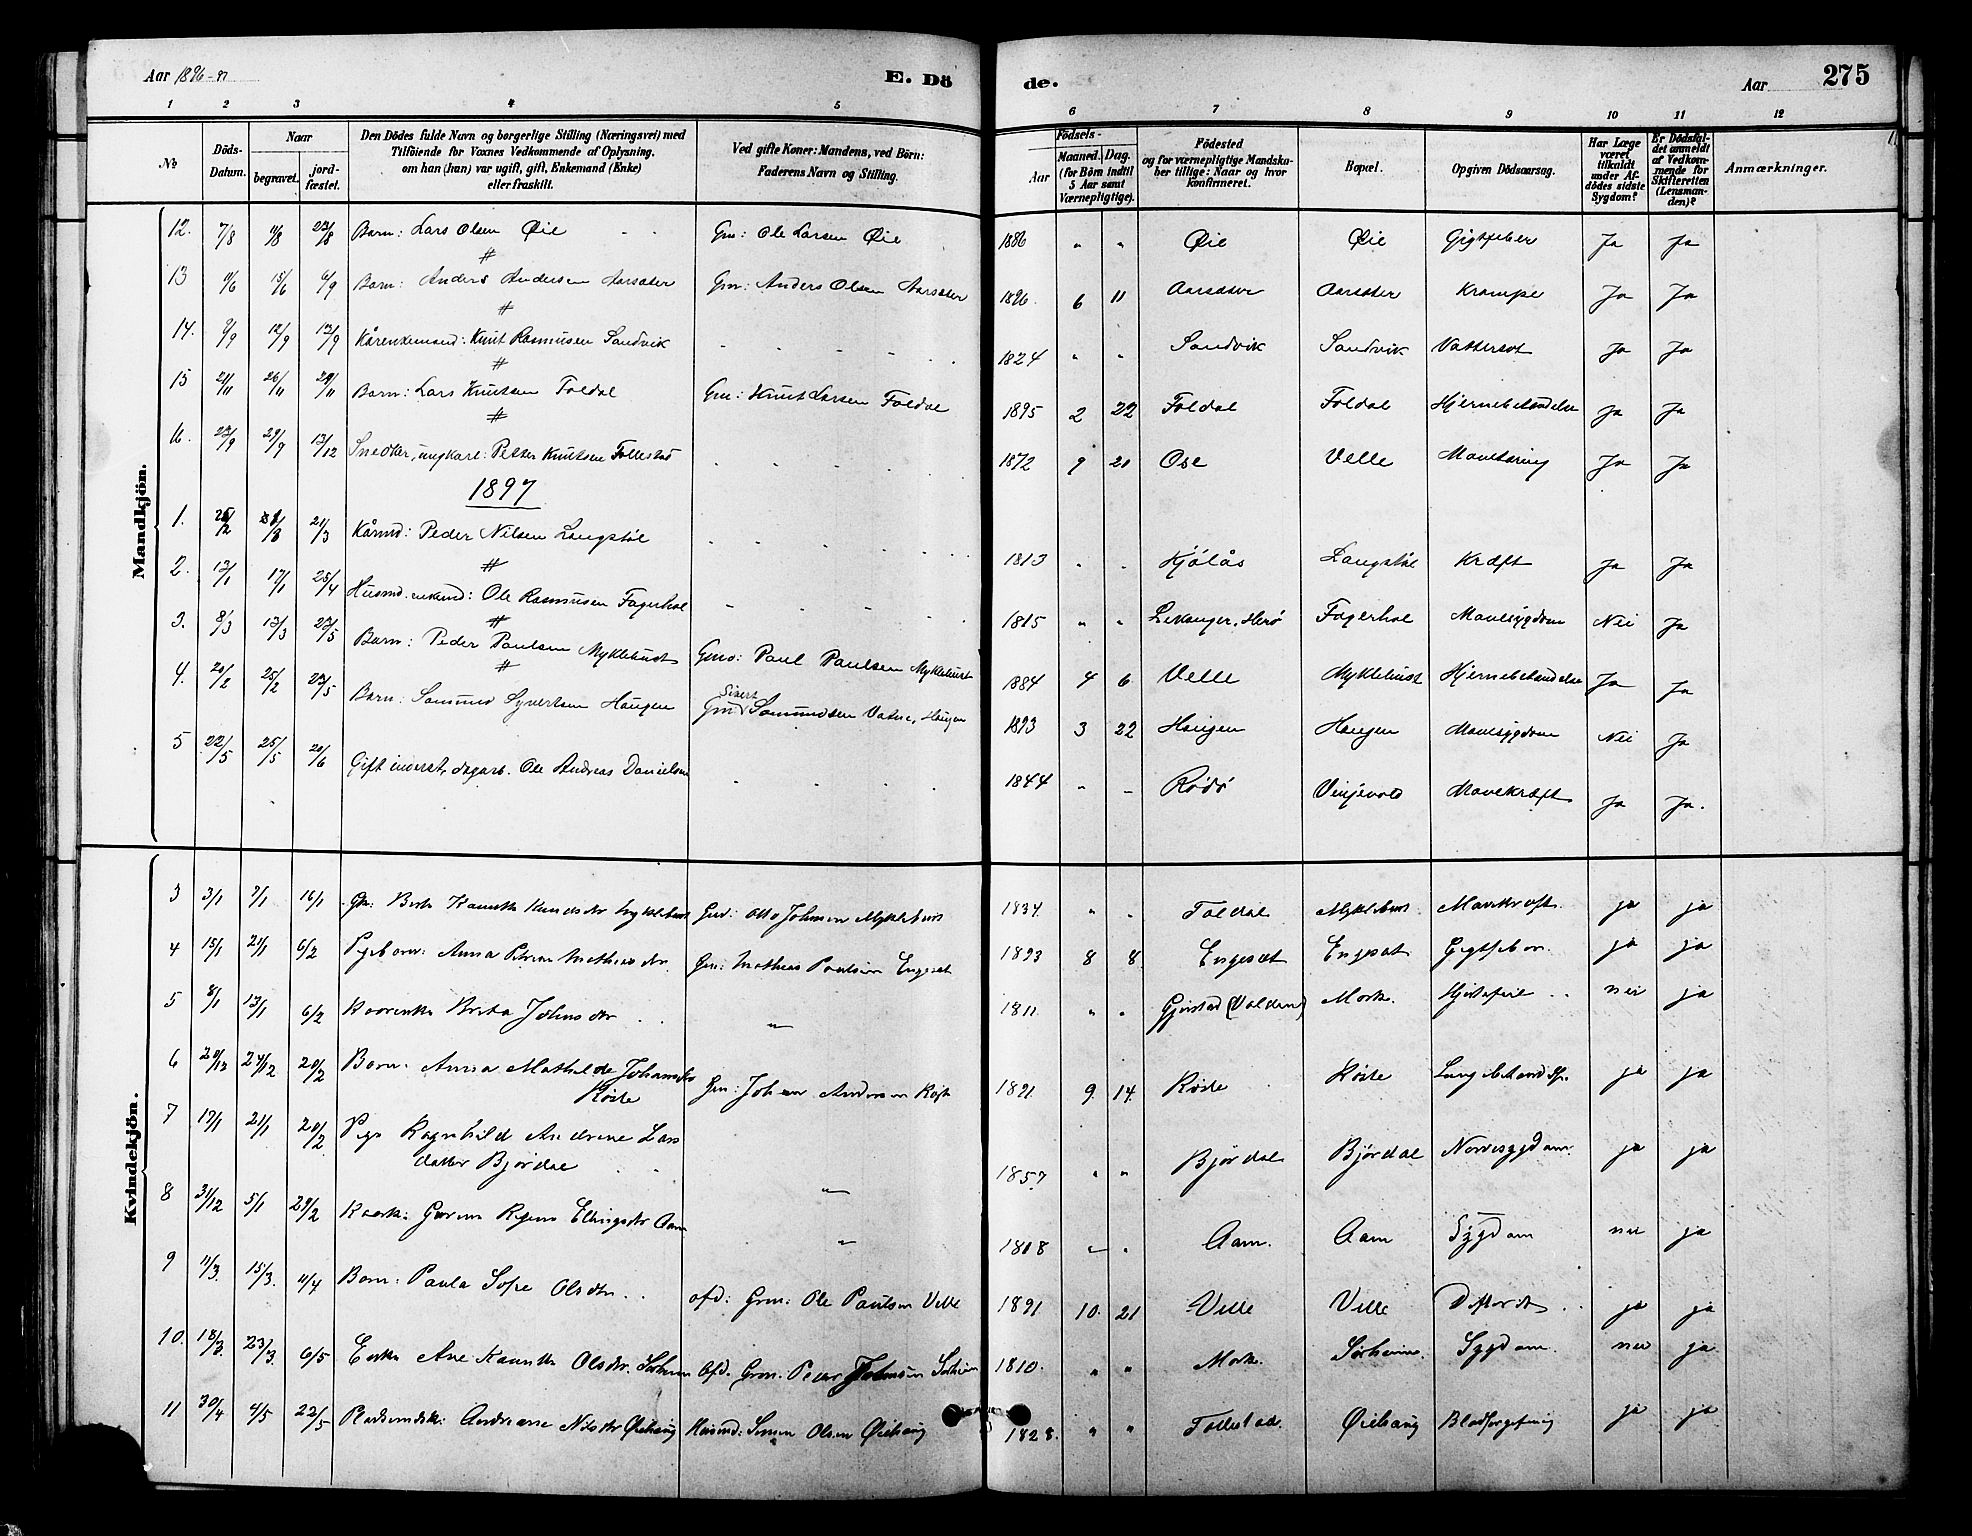 Aar 1896-97
E. Dö
de.
Aar
275
1 2 3 4 5 6 7 8 9 10 11 12
No
Döds-Datum.
Naar
begravet.
jord-fæstet.
Den Dödes fulde Navn og borgerlige Stilling (Næringsvei) med
Tilföiende for Voxnes Vedkommende af Oplysning.
om han (hun) var ugift, gift, Enkemand (Enke)
eller fraskilt.
Ved gifte Koner: Mandens, ved Börn:
Faderens Navn og Stilling.
Födsels-
Aar
Maaned. Dag.
(for Börn indtil
5 Aar samt
Værnepligtige).
Födested
og for værnepligtige Mandska-
ber tillige: Naar og hvor
konfirmeret.
Bopæl.
Opgiven Dödsaarsag.
Har Læge
været
tilkaldt
under Af-
dödes sidste
Sygdom?
Er Dödsfal-
det anmeldt
af Vedkom-
mende for
Skifteretten
(Lensman-
den)?
Anmærkninger.
Mandkjön.
12. 7/8 11/8 23/8 Barn: Lars Olsen Øie Gm: Ole Larsen Øie 1886 " " Øie Øie Gigtfeber Ja Ja
13 11/6 15/6 6/9 Barn: Anders Andersen Aarsæter Gm: Anders Olsen Aarsæter 1896. 6 11 Aarsæter Aarsæter Krampe Ja Ja
14. 9/9 12/9 13/9 Kårenkemand: Knut Rasmusen Sandvik 1824 " " Sandvik Sandvik Vattersot Ja Ja
15 21/11 26/11 29/11 Barn: Lars Knutsen Foldal Gm: Knut Larsen Foldal 1895 2 22 Foldal Foldal Hjernebetændelse Ja Ja
16. 23/9 29/9 13/12 Snedker, ungkarl: Petter Knutsen Follestad 1872 9 21 Ose Velle Mavetæring Ja Ja
1897
1. 2 21/3 Kårmd: Peder Nilsen Langstøl 1813 " " Kjølås Langstøl Kræft Ja Ja
2. 13/1 17/1 25/4 Husmd. enkemd: Ole Rasmusen Fagerhol 1815 " " Lekanger, Herø Fagerhol Mavesygdom Nei Ja
3. 8/3 13/3 23/5 Barn: Peder Paulsen Myklebust Gmd: Paul Paulsen Myklebust 1884 4 6 Velle Myklebust Hjernebetændelse Ja Ja
4. 20/2 25/2 23/5 Barn: Samund Syvertsen Haugen Gm: Sivert Samundsen Vatne, Haugen 1893 3 22 Haugen Haugen Mavesygdom Nei Ja
5 22/5 25/5 20/6 Gift inderst, dagarb. Ole Andreas Danielsen 1844 " " Rødø Vinjevold Mavekræft Ja Ja.
Kvindekjön.
3 3/1 7/1 16/1 Gk: Berte Knutsdtr Myklebust Gmd: Otto Johnsen Myklebust 1834. " " Foldal Myklebust Mavekræft ja ja
4 15/1 21/1 6/2 Pigebarn: Anna Petrine Mathiasdtr. Gm: Mathias Paulsen Engeset 1893 8 8. Engeset Engeset Gigtfeber. ja ja
5 8/1 13/1 6/2 Kaarenke Berta Johnsdtr " 1811. " " Gjerstad (Volden) Mork. Hjertefeil nei ja
6 20/12 24/12 20/2 Barn: Anna Mathilde Johansdtr Røste Gm: Johan Andersen Røste 1891. 9. 14. Røste Røste ja ja
7 17/1 21/1 20/2 Pige Ragnhild Andrine Lars
datter Bjørdal " 1857 " " Bjørdal Bjørdal Nervesygdom. ja ja
8 31/12 5/1 21/2 Ellingsdtr Aam " 1818 " " Aam. Aam Sygdom nei ja
9 11/3. 15/3. 11/4 Barn: Paula Sofie Olsdtr. afd: Grm: Ole Paulsen Velle 1891 10. 21 Velle Velle ja ja
10. 18/3. 23/3. 6/5 Enke Ane Olsdtr. Sørheim Afd. Grm. Peder Johnsen Sørheim 1810. " " Mork. Sørheim. Sygdom. nei ja
11 30/4 4/5 22/5 Andrianne Nilsdtr Øiehaug Husmd: Simen Olsen Øiehaug 1828. " " Follestad. Øiehaug Blodforgiftning ja ja